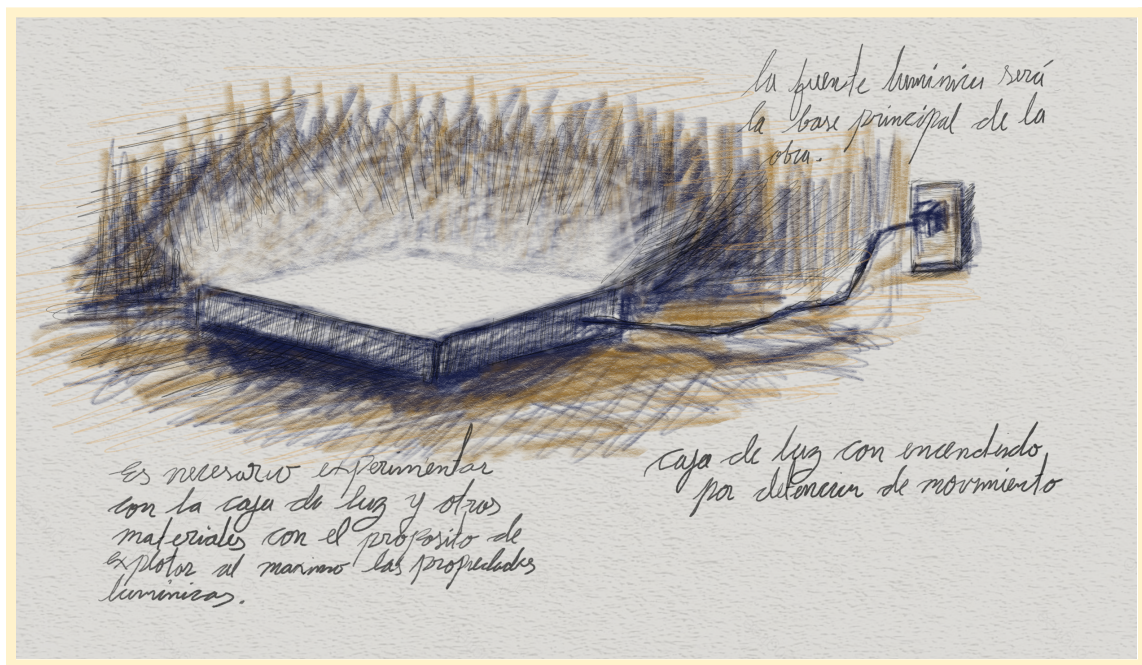 la fuente lumínica será
la base principal de la
obra.
Es necesario experimentar
con la caja de luz y otros
materiales con el proposito de
explotar al maximo las propiedades
lumínicas.
caja de luz con encendido
por detencion de movimiento